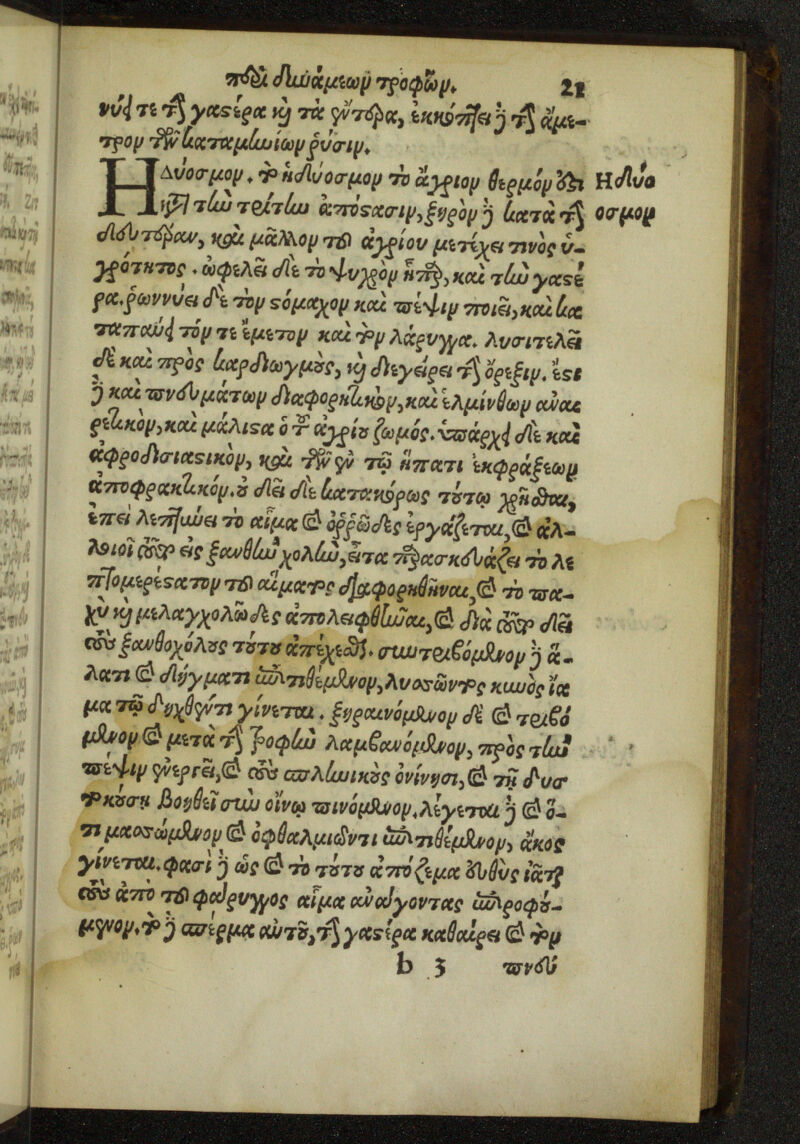 περὶ δυνάμεων τροφῶν. 21
νύει τε τὴν γαστέρα καὶ τὰ ἔντερα, ἐκκόπτει δὲ τὴν ἄμε-
τρον τῶν καταμηνίων ῥύσιν.
Ηδύοσμον. τὸ ἡδύοσμον τὸ ἄγριον θερμόν ἐστι
κατὰ τὴν τρίτην ἀπόστασιν, ξηρὸν δὲ κατὰ τὴν
Ηδύο
οσμον
δευτέραν, καὶ μᾶλλον τοῦ ἀγρίου μετέχει τινὸς ὑ-
γρότητος. ὠφελεῖ δὲ τὸ ψυχρὸν ἧπαρ, καὶ τὴν γαστέ
ρα. ῥωννύει δὲ τὸν στόμαχον καὶ πέψιν ποιεῖ, καὶ κα
ταπαύει τόν τε ἔμετον καὶ τὸν λάρυγγα. λυσιτελεῖ
δὲ καὶ πρὸς καρδιωγμοὺς, καὶ διεγείρει τὴν ὄρεξιν. ἔστι
δὲ καὶ πνευμάτων διαφορητικὸν, καὶ ἑλμίνθων ἀναι
ρετικὸν, καὶ μάλιστα ὁ τοῦ ἀγρίου ζωμός. ὑπάρχει δὲ καὶ
ἀφροδισιαστικὸν, καὶ τῶν ἐν τῷ ἥπατι ἐκφράξεων
ἀποφρακτικόν. οὐ δεῖ δὲ κατακόρως τούτῳ χρῆσθαι,
ἐπεὶ λεπτύνει τὸ αἷμα καὶ ὀρρῶδες ἐργάζεται, καὶ ἀλ-
λοιοῖ εἰς ξανθὴν χολὴν, εἶτα παρασκευάζει τὸ λε
πτομερέστατον τοῦ αἵματος διαφορηθῆναι, καὶ τὸ πα-
χὺ καὶ μελαγχολῶδες ἀπολειφθῆναι, καὶ διὰ δεῖ
τοὺς ξανθοχόλους τούτου ἀπέχεσθαι. συντριβόμενον δὲ ἅ-
λατι καὶ δήγματι ἐπιτιθέμενον, λυσσῶντος κυνὸς ἴα
μα τῷ δηχθέντι γίνεται. ξηραινόμενον δὲ καὶ τριβό
μενον καὶ μετὰ τὴν ῥοφὴν λαμβανόμενον, πρὸς τὴν
πέψιν ἐνεργεῖ, καὶ τοὺς σπληνικοὺς ὀνίνησι, καὶ τῇ δυσ
τοκούσῃ βοηθεῖ σὺν οἴνῳ πινόμενον. λέγεται δὲ καὶ ὅ-
τι μασσώμενον καὶ ὀφθαλμιῶντι ἐπιτιθέμενον, ἄκος
γίνεται. φασὶ δὲ ὡς καὶ τὸ τούτου ἀπόζεμα εὐθὺς ἰᾶται
τοὺς ἀπὸ τοῦ φάρυγγος αἷμα ἀνάγοντας ἐπιροφού-
μενον. τὸ δὲ σπέρμα αὐτοῦ, τὴν γαστέρα καθαίρει καὶ τὸν
b 3 πνεύ